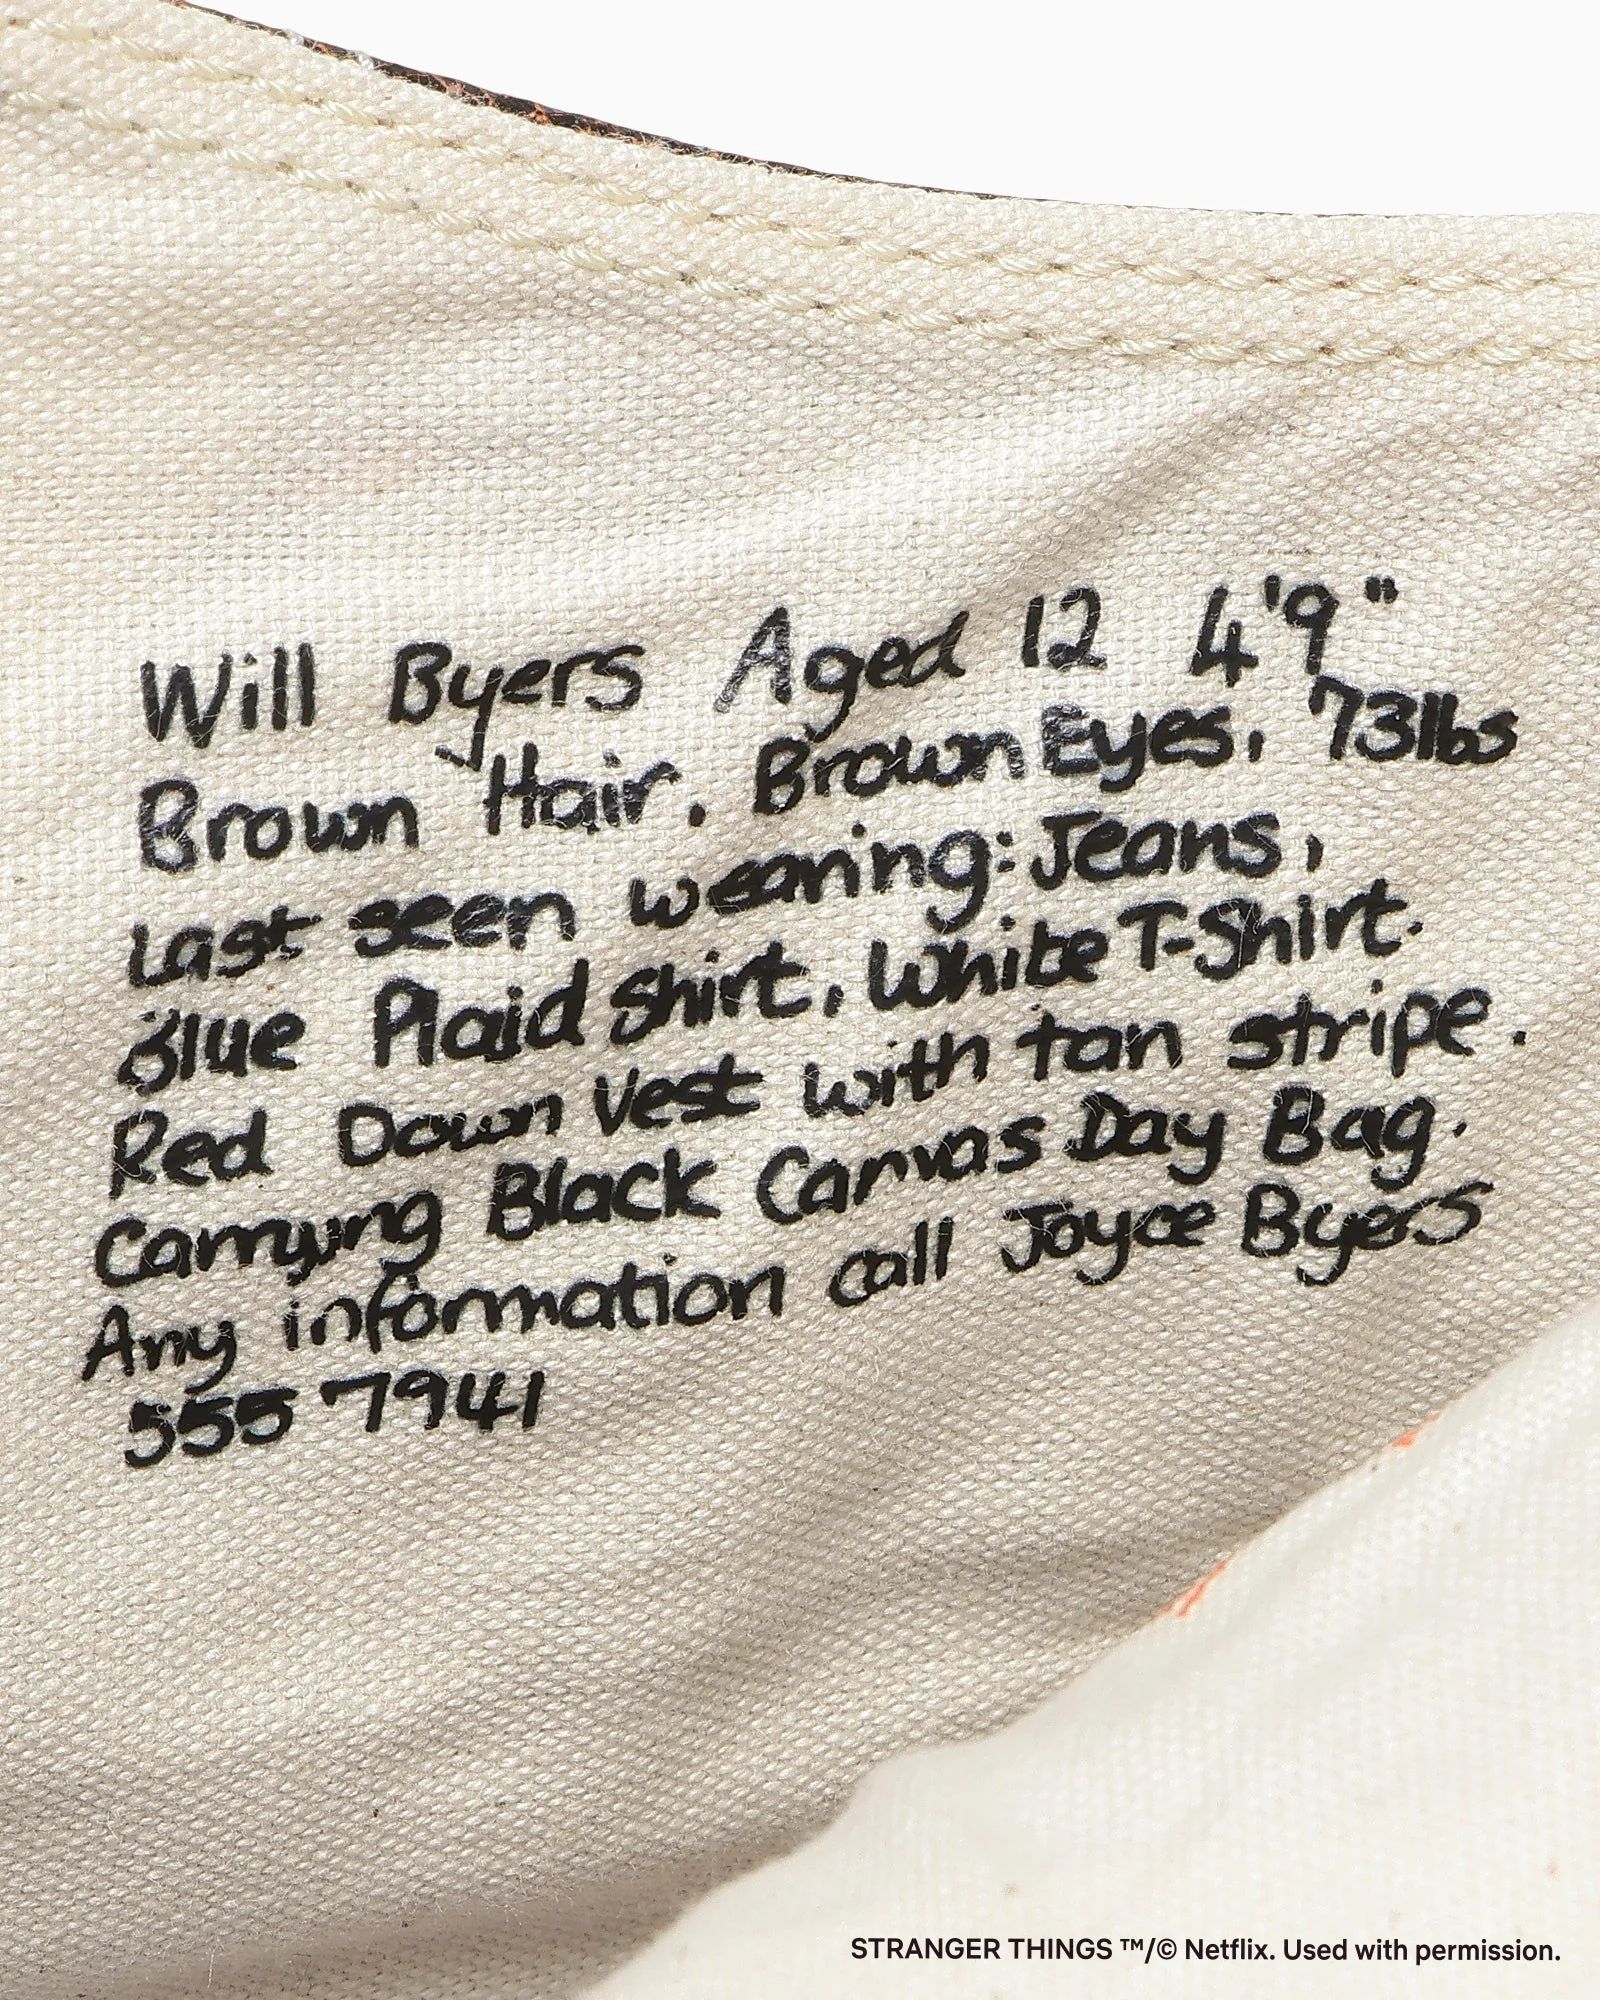 Will Byers Aged 12 4'9"
Brown Hair. Brown Eyes, 73lbs
Last seen wearing: Jeans,
Blue Plaid Shirt, White T-Shirt.
Red Down Vest with tan stripe.
Carrying Black Canvas Day Bag.
Any information call Joyce Byers
555 7941
STRANGER THINGS ™/© Netflix. Used with permission.